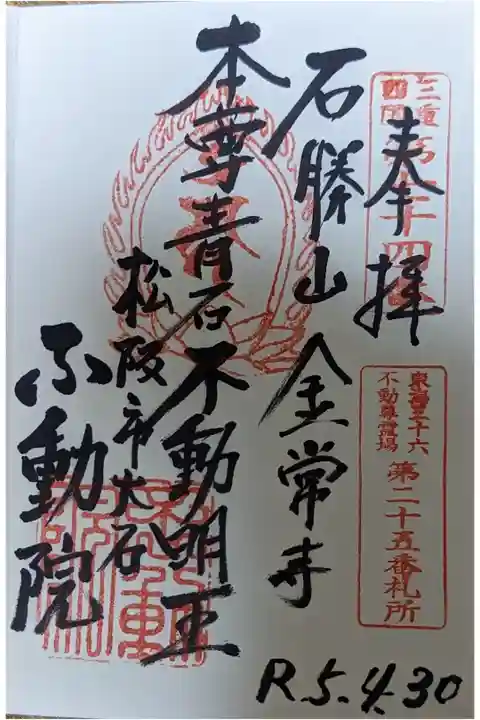 奉拝
三重
四国第十四番
東海三十六
不動尊霊場
第二十五番札所
石勝山 金常寺
本尊青石不動明王
松阪市大石
不動院
R.5.4.30